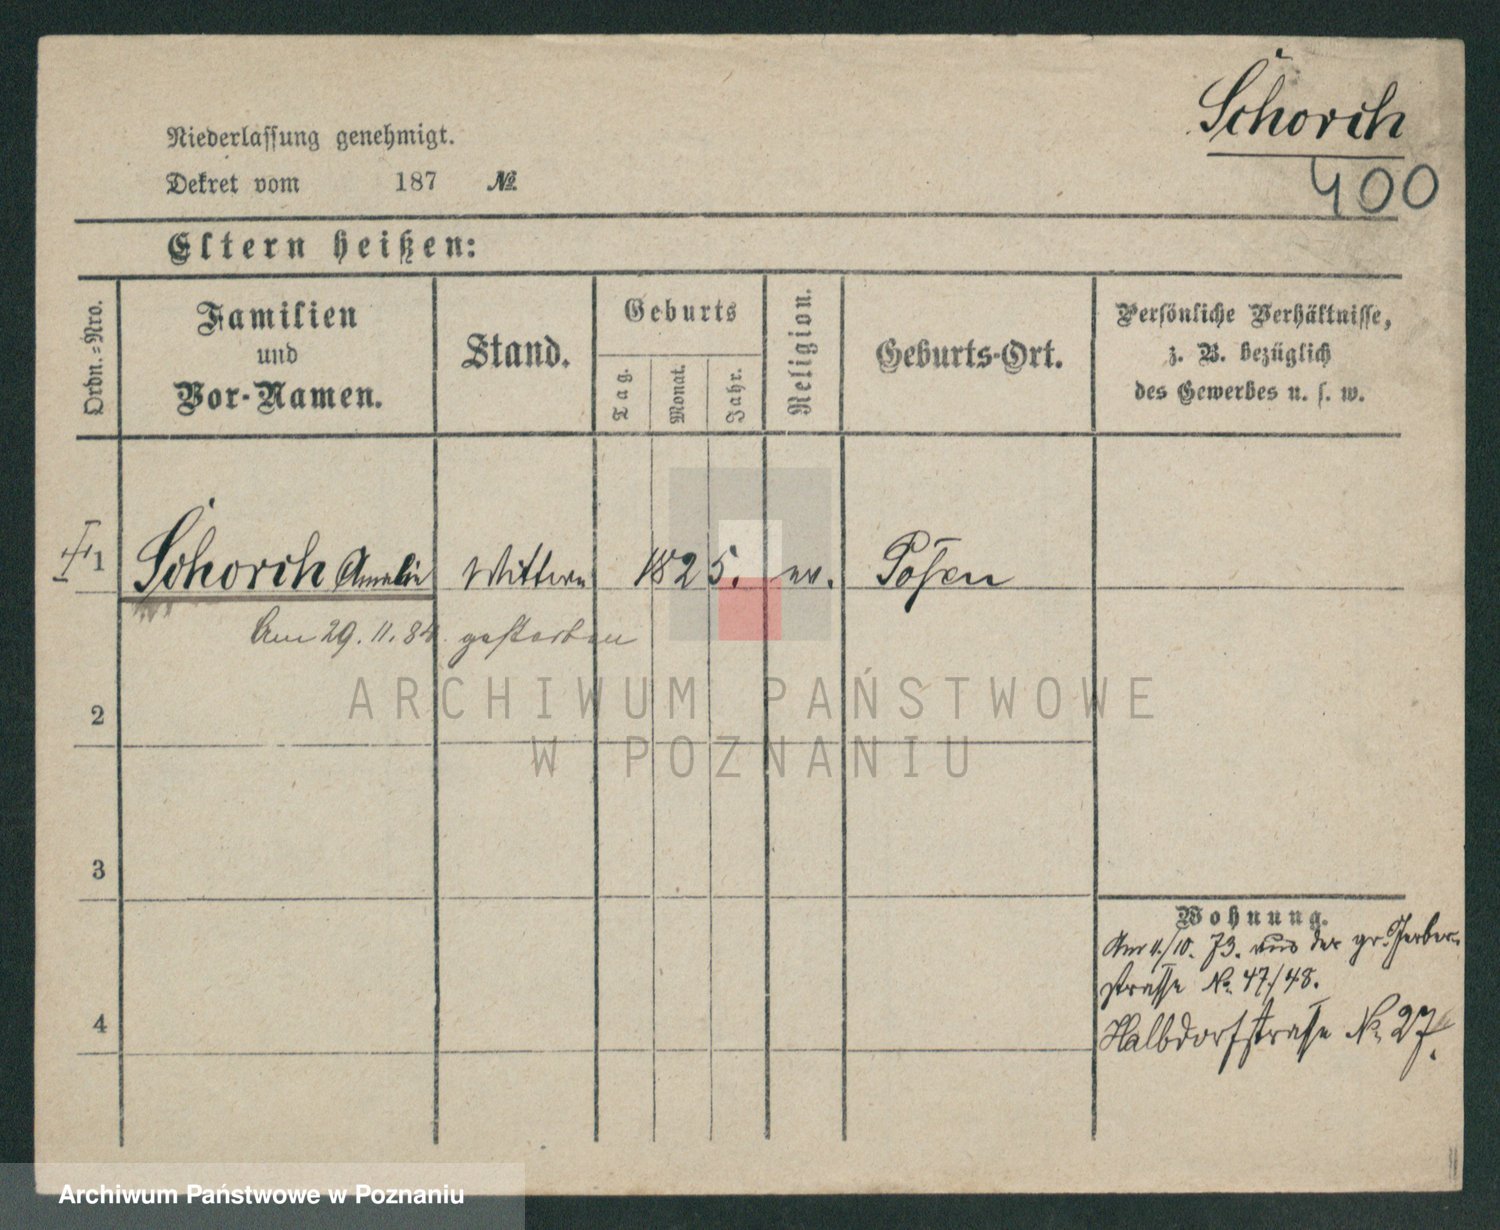 Schorch
400
Niederlassung genehmigt.
Dekret vom 187 №
Eltern heißen:
Ordn.=Nro.
Familien
und
Vor-Namen.
Stand.
Geburts
Tag.
Monat.
Jahr.
Religion.
Geburts-Ort.
Persönliche Verhältnisse,
z. B. bezüglich
des Gewerbes u. s. w.
1 Schorch Amalie Wittwe 1825. ev. Posen
Am 29. 11. 84. gestorben
ARCHIWUM PAŃSTWOWE
W POZNANIU
2
3
4
Wohnung.
Am 11./10. 73. aus der gr. Gerber-
strasse No. 47/48.
Halbdorfstrasse No. 27.
Archiwum Państwowe w Poznaniu